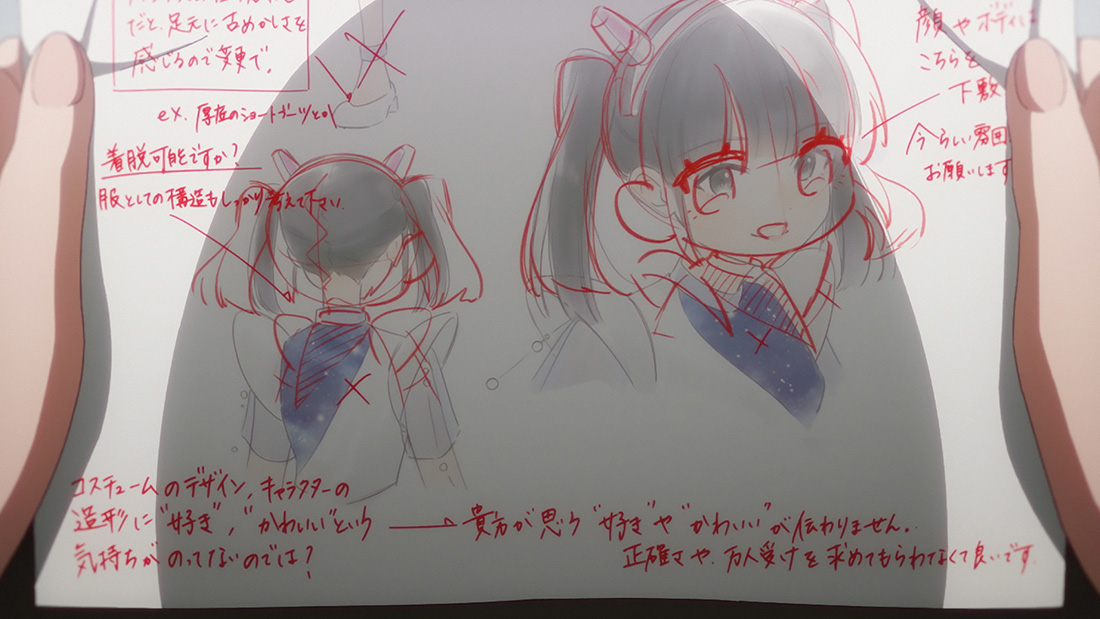 だと、足元に古めかしさを
感じるので変更で。
ex. 厚底のショートブーツとか
着脱可能ですか?
服としての構造もしっかり考えて下さい.
顔やボディは
こちらを
下敷
今らしい雰囲
お願いします
コスチュームのデザイン, キャラクターの
造形に"好き", "かわいい"という
気持ちがのってないのでは?
貴方が思う"好き"や"かわいい"が伝わりません.
正確さや、万人受けを求めてもらわなくて良いです.